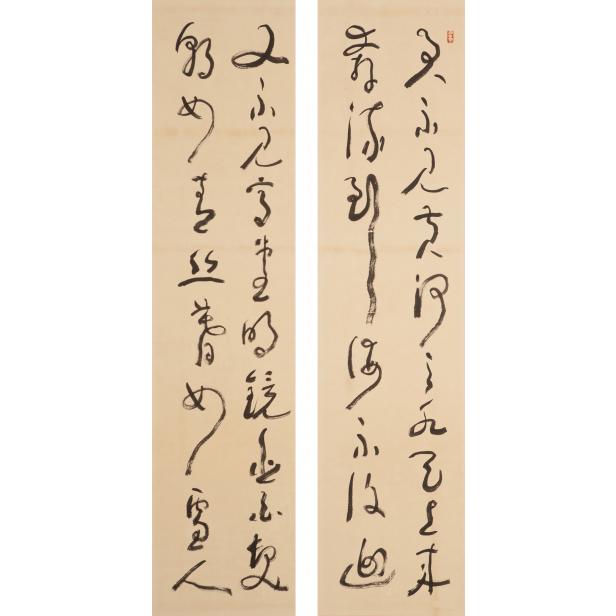 君不見黃河之水天上來
奔流到海不復迴
又不見高堂明鏡悲白髮
朝如青絲暮如雪人